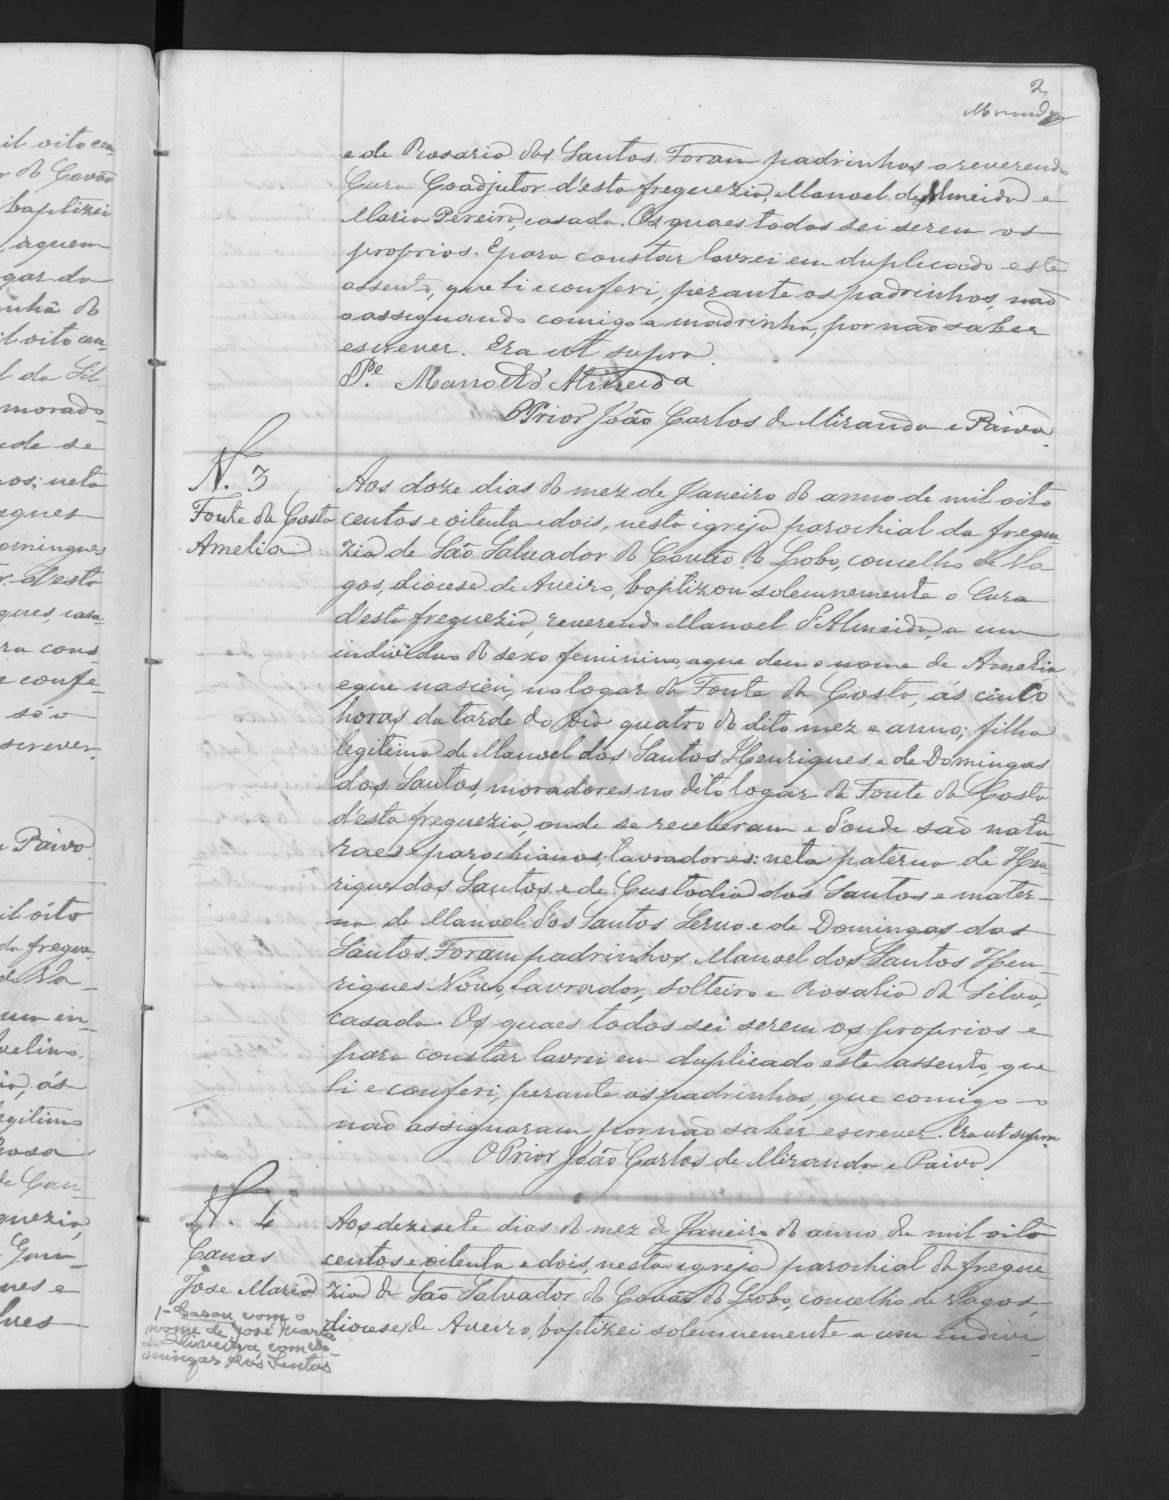 2
Miranda
e de Rosaria dos Santos. Foram padrinhos o reverendo
Cura Coadjutor d'esta freguezia, Manoel de Almeida e
Maria Pereira, casada. Os quaes todos sei serem os
proprios. E para constar lavrei em duplicado este
assento, que li e conferi, perante os padrinhos, não
o assignando comigo a madrinha, por não saber
escrever. Era ut supra.
P.e Manoel d'Almeida
O Prior João Carlos de Miranda e Paiva.
N. 3
Fonte da Costa
Amelia
Aos doze dias do mez de Janeiro do anno de mil oito
centos e oitenta e dois, nesta igreja parochial da fregue
zia de São Salvador do Covão do Lobo, concelho de Va
gos, diocese de Aveiro, baptizou solemnemente o Cura
d'esta freguezia, reverendo Manoel d'Almeida, a um
individuo do sexo feminino, a que deu o nome de Amelia
e que nasceu, no logar da Fonte da Costa, ás cinco
horas da tarde do dia quatro do dito mez e anno; filha
legitima de Manoel dos Santos Henriques e de Domingas
dos Santos, moradores no dito logar da Fonte da Costa
d'esta freguezia, onde se receberam e d'onde são natu
raes e parochianos, lavradores: neta paterna de Hen
rique dos Santos e de Custodia dos Santos e mater-
na de Manoel dos Santos Servo e de Domingas dos
Santos. Foram padrinhos Manoel dos Santos Hen-
riques Novo, lavrador, solteiro e Rosalia da Silva,
casada. Os quaes todos sei serem os proprios e
para constar lavrei em duplicado este assento, que
li e conferi, perante os padrinhos, que comigo o
não assignaram por não saber escrever. Era ut supra.
O Prior João Carlos de Miranda e Paiva
N. 4
Canas
Jose Maria
1- Casou com o
nome de José Maria
de Oliveira, com Do-
mingas dos Santos
Aos dezesete dias do mez de Janeiro do anno de mil oito
centos e oitenta e dois, nesta igreja parochial da fregue
zia de São Salvador do Covão do Lobo, concelho de Vagos,
diocese de Aveiro, baptizei solemnemente a um indivi